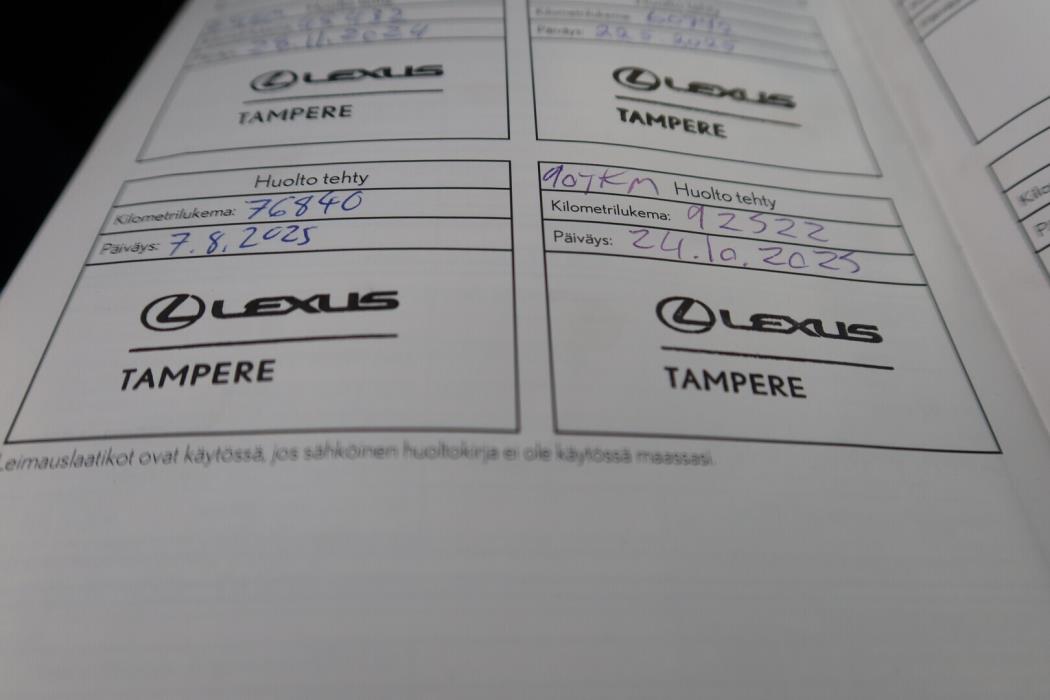 28.11.2024
LEXUS
TAMPERE
Kilometrilukema:
Päiväys: 22.5.2025
LEXUS
TAMPERE
Huolto tehty
Kilometrilukema: 76840
Päiväys: 7.8.2025
LEXUS
TAMPERE
90TKM Huolto tehty
Kilometrilukema: 92522
Päiväys: 24.10.2025
LEXUS
TAMPERE
Leimauslaatikot ovat käytössä, jos sähköinen huoltokirja ei ole käytössä maassasi.